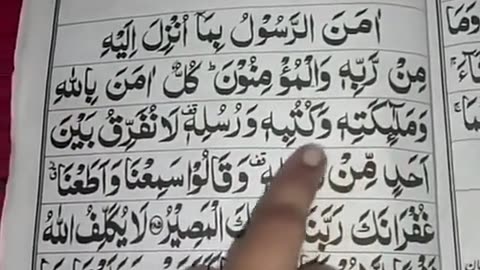 اٰمَنَ الرَّسُوْلُ بِمَاۤ اُنْزِلَ اِلَيْهِ
مِنْ رَّبِّهٖ وَالْمُؤْمِنُوْنَ ؕ كُلٌّ اٰمَنَ بِاللّٰهِ
وَمَلٰٓئِكَتِهٖ وَكُتُبِهٖ وَرُسُلِهٖ ۫ لَا نُفَرِّقُ بَيْنَ
اَحَدٍ مِّنْ وَقَالُوْا سَمِعْنَا وَاَطَعْنَا
غُفْرَانَكَ رَبَّنَا الْمَصِيْرُ لَا يُكَلِّفُ اللّٰهُ